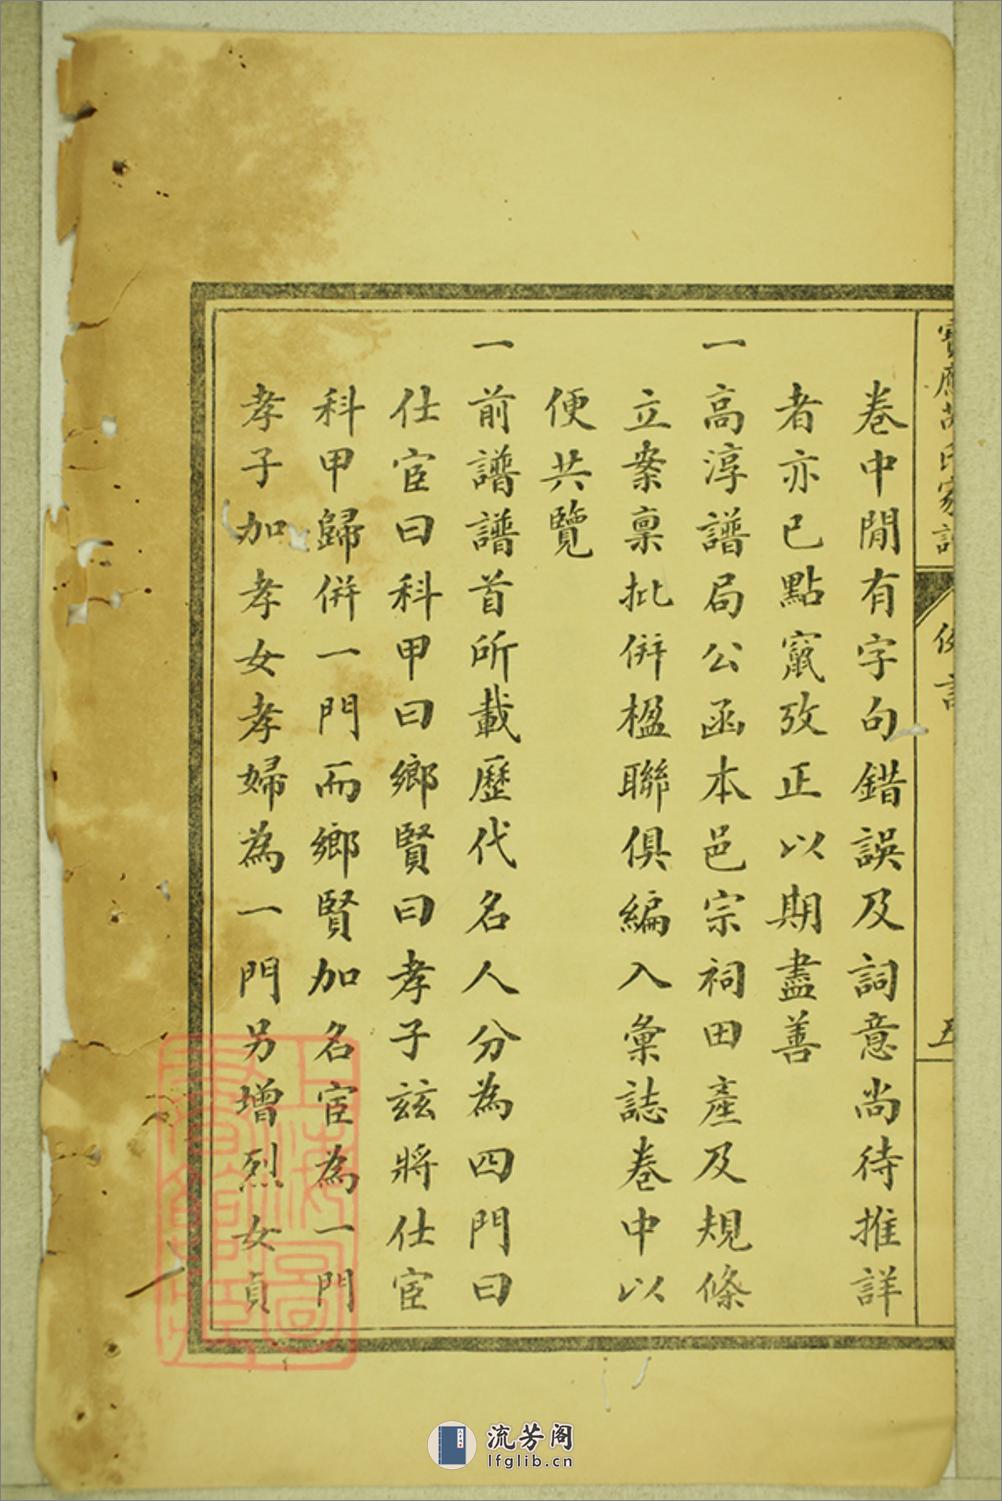 卷中閒有字句錯誤及詞意尚待推詳
者亦已點竄攷正以期盡善
一高淳譜局公函本邑宗祠田產及規條
立案稟批併楹聯俱編入彙誌卷中以
便共覽
一前譜譜首所載歷代名人分為四門曰
仕宦曰科甲曰鄉賢曰孝子茲將仕宦
科甲歸併一門而鄉賢加名宦為一門
孝子加孝女孝婦為一門另增烈女貞
流芳阁
lfglib.cn